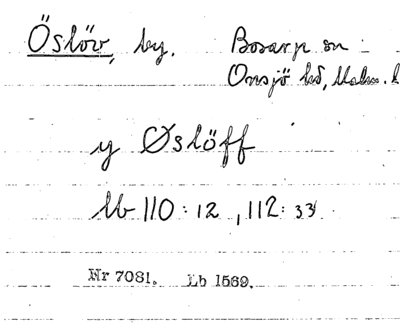 Öslöv, by. Bosarp sn
Onsjö hd, Malm. l
y Øslöff
Lb 110:12, 112:33
Nr 7081. Lb 1569.